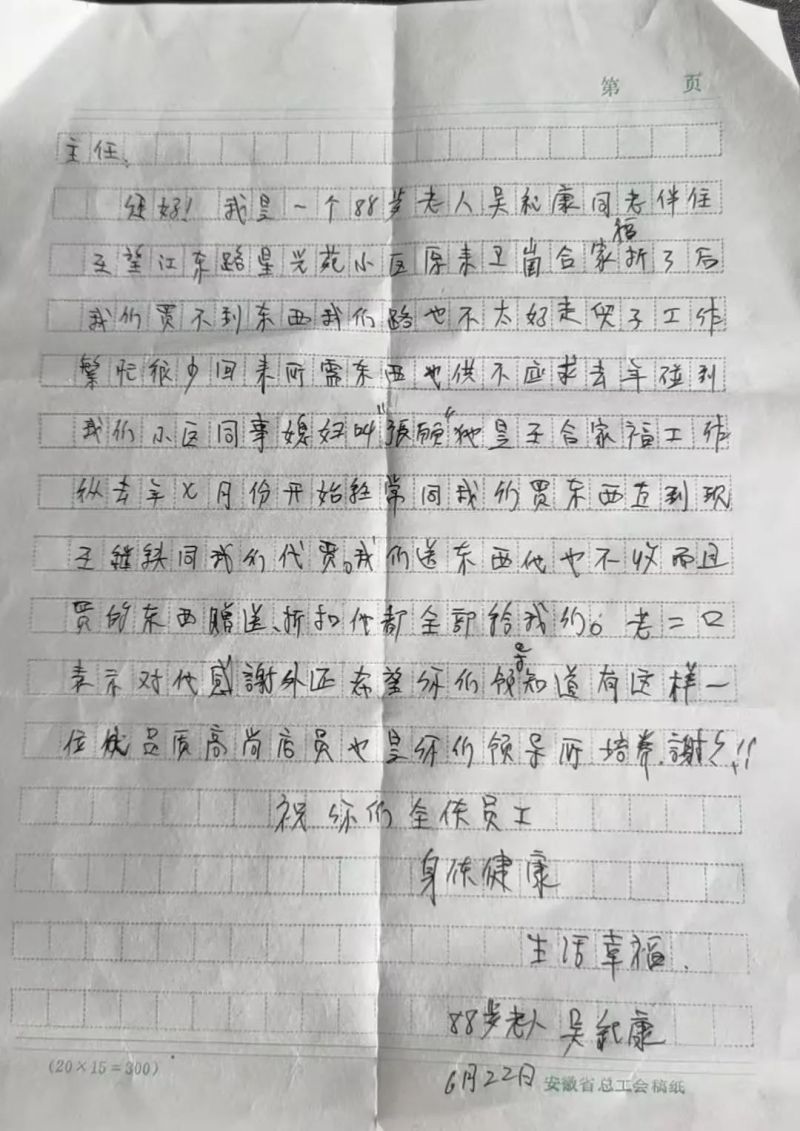 第 页
主任、
您好！我是一个88岁老人吴和康同老伴住
在望江东路星光苑小区原来卫岗合家福拆了后
我们买不到东西我们路也不太好走儿子工作
繁忙很少回来所需东西也供不应求去年碰到
我们小区同事媳妇叫“張丽”她是在合家福工作
从去年X月份开始经常同我们买东西直到现
在继续同我们代买。我们送东西他也不收而且
买的东西赠送、折扣他都全部给我们。老二口
表示对他感謝外还希望你们领导知道有这样一
位优品质高尚店员也是你们领导所培养.謝〻!!
祝你们全体员工
身体健康
生活幸福.
88岁老人 吴和康
6月22日
(20×15=300)
安徽省总工会稿纸